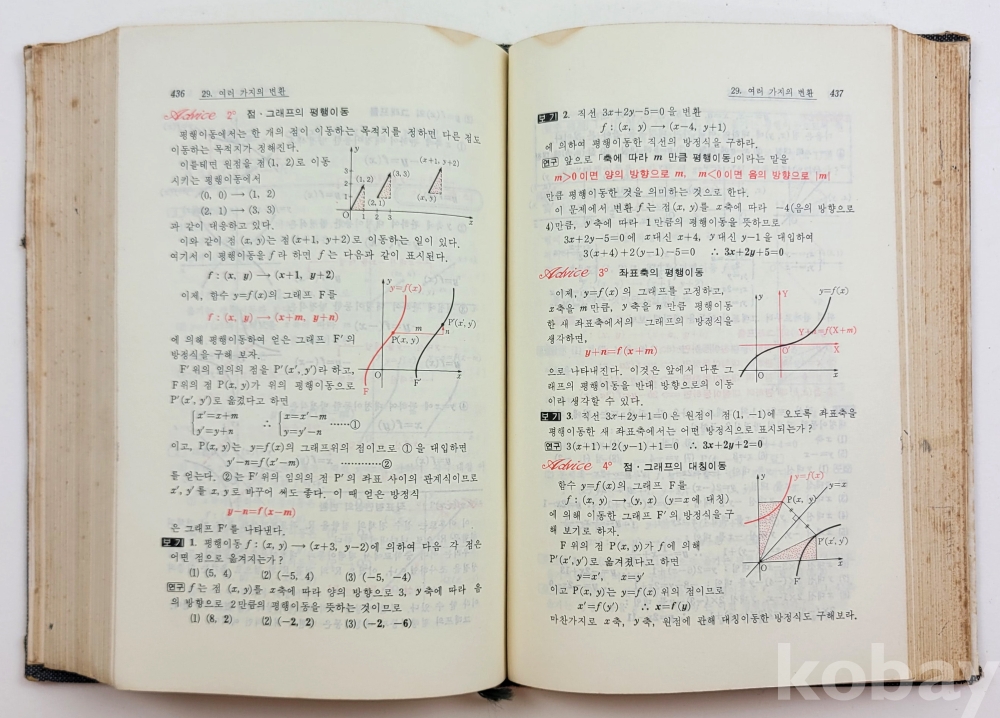 436 29. 여러 가지의 변환
Advice 2° 점·그래프의 평행이동
평행이동에서는 한 개의 점이 이동하는 목적지를 정하면 다른 점도
이동하는 목적지가 정해진다.
이를테면 원점을 점(1, 2)로 이동
시키는 평행이동에서
(0, 0) → (1, 2)
(2, 1) → (3, 3)
과 같이 대응하고 있다.
y
(x+1, y+2)
3
2
1
(1, 2)
(3, 3)
(2, 1)
(x, y)
O 1 2 3 x
이와 같이 점 (x, y)는 점(x+1, y+2)로 이동하는 일이 있다.
여기서 이 평행이동을 f라 하면 f는 다음과 같이 표시된다.
f : (x, y) → (x+1, y+2)
이제, 함수 y=f(x)의 그래프 F를
f : (x, y) → (x+m, y+n)
에 의해 평행이동하여 얻은 그래프 F′의
방정식을 구해 보자.
F′위의 임의의 점을 P′(x′, y′)라 하고,
F위의 점 P(x, y)가 위의 평행이동으로
P′(x′, y′)로 옮겼다고 하면
y
y=f(x)
m
P′(x′, y′)
n
P(x, y)
O x
F F′
x′=x+m
y′=y+n
∴ x=x′−m
y=y′−n ……①
이고, P(x, y)는 y=f(x)의 그래프위의 점이므로 ①을 대입하면
y′−n=f(x′−m) …………②
를 얻는다. ②는 F′위의 임의의 점 P′의 좌표 사이의 관계식이므로
x′, y′를 x, y로 바꾸어 써도 좋다. 이 때 얻은 방정식
y−n=f(x−m)
은 그래프 F′를 나타낸다.
보기 1. 평행이동 f : (x, y) → (x+3, y−2)에 의하여 다음 각 점은
어떤 점으로 옮겨지는가?
(1) (5, 4) (2) (−5, 4) (3) (−5, −4)
연구 f는 점 (x, y)를 x축에 따라 양의 방향으로 3, y축에 따라 음
의 방향으로 2만큼의 평행이동을 뜻하는 것이므로
(1) (8, 2) (2) (−2, 2) (3) (−2, −6)
29. 여러 가지의 변환 437
보기 2. 직선 3x+2y−5=0을 변환
f : (x, y) → (x−4, y+1)
에 의하여 평행이동한 직선의 방정식을 구하라.
연구 앞으로 「축에 따라 m 만큼 평행이동」이라는 말을
m>0이면 양의 방향으로 m, m<0이면 음의 방향으로 |m|
만큼 평행이동한 것을 의미하는 것으로 한다.
이 문제에서 변환 f는 점(x, y)를 x축에 따라 −4(음의 방향으로
4)만큼, y축에 따라 1만큼의 평행이동을 뜻하므로
3x+2y−5=0에 x대신 x+4, y대신 y−1을 대입하여
3(x+4)+2(y−1)−5=0 ∴ 3x+2y+5=0
Advice 3° 좌표축의 평행이동
이제, y=f(x)의 그래프를 고정하고,
x축을 m만큼, y축을 n만큼 평행이동
한 새 좌표축에서의 그래프의 방정식을
생각하면,
y+n=f(x+m)
으로 나타내진다. 이것은 앞에서 다룬 그
래프의 평행이동을 반대 방향으로의 이동
이라 생각할 수 있다.
y
Y
y=f(x)
Y+n=f(X+m)
O′ X
O x
보기 3. 직선 3x+2y+1=0은 원점이 점(1, −1)에 오도록 좌표축을
평행이동한 새 좌표축에서는 어떤 방정식으로 표시되는가?
연구 3(x+1)+2(y−1)+1=0 ∴ 3x+2y+2=0
Advice 4° 점·그래프의 대칭이동
함수 y=f(x)의 그래프 F를
f : (x, y) → (y, x) (y=x에 대칭)
에 의해 이동한 그래프 F′의 방정식을 구
해 보기로 하자.
F 위의 점 P(x, y)가 f에 의해
P′(x′, y′)로 옮겨졌다고 하면
y=x′, x=y′
이고 P(x, y)는 y=f(x) 위의 점이므로
x′=f(y′) ∴ x=f(y)
마찬가지로 x축, y축, 원점에 관해 대칭이동한 방정식도 구해보라.
y
y=f(x)
y=x
P(x, y)
P′(x′, y′)
O x
F
kobay